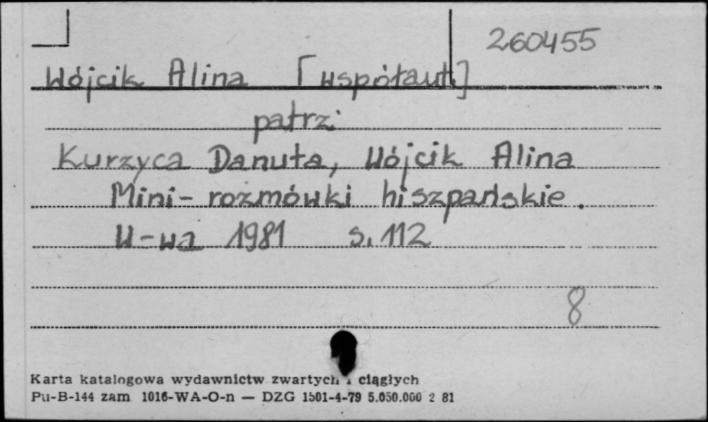 260455
Wójcik Alina [współaut.]
patrz:
Kurzyca Danuta, Wójcik Alina
Mini-rozmówki hiszpańskie.
W-wa 1981 s. 112
8
Karta katalogowa wydawnictw zwartych i ciągłych
Pu-B-144 zam 1016-WA-O-n — DZG 1501-4-79 5.050.000 2 81